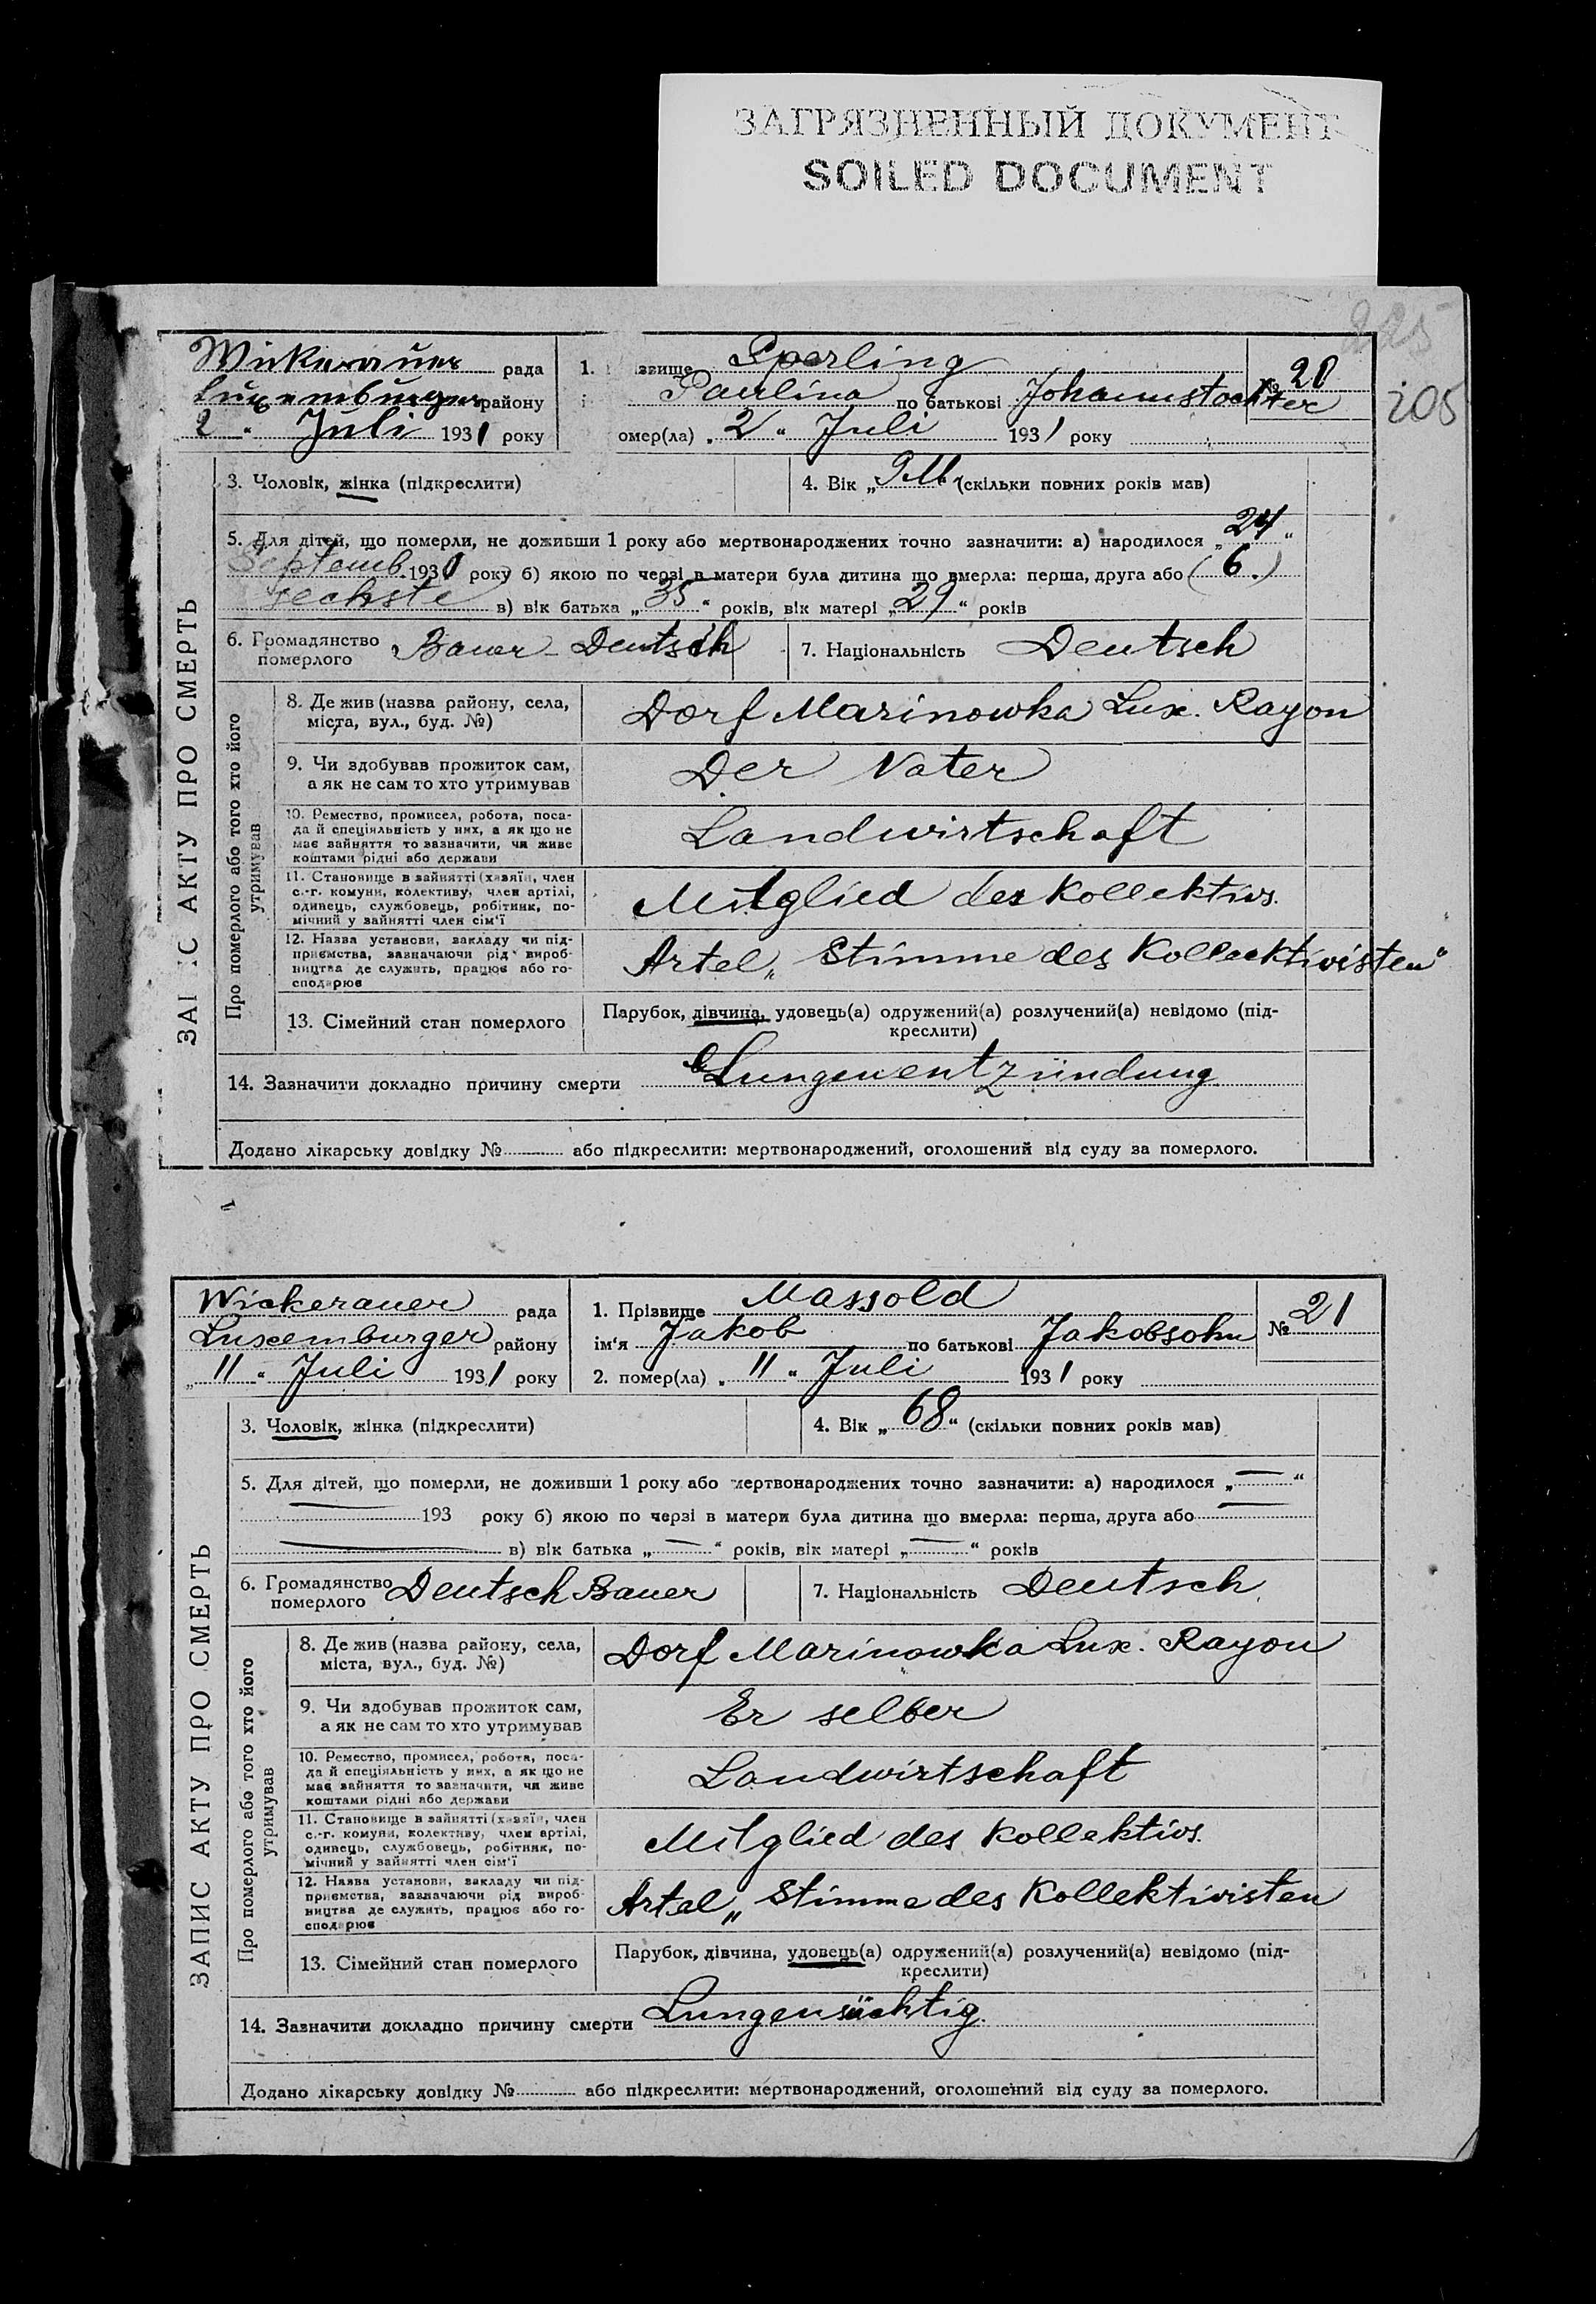 ЗАГРЯЗНЕННЫЙ ДОКУМЕНТ
SOILED DOCUMENT
225
205
Wickerauer рада
Luxemburger району
2 " Juli 1931 року
1. звище Sperling
Paulina по батькові Johannstochter
омер(ла) „ 2 " Juli 1931 року
№ 20
ЗАІ ІС АКТУ ПРО СМЕРТЬ
3. Чоловік, жінка (підкреслити)
4. Вік „ 9 M " (скільки повних років мав)
5. Для дітей, що померли, не доживши 1 року або мертвонароджених точно зазначити: а) народилося „ 24 "
Septemb. 1930 року б) якою по черзі в матери була дитина що вмерла: перша, друга або (6.)
sechste в) вік батька „ 35 " років, вік матері „ 29 " років
6. Громадянство померлого Bauer - Deutsch
7. Національність Deutsch
Про померлого або того хто його утримував
8. Де жив (назва району, села,
міста, вул., буд. №)
Dorf Marinowka Lux. Rayon
9. Чи здобував прожиток сам,
а як не сам то хто утримував
Der Vater
10. Ремество, промисел, робота, поса-
да й спеціяльність у них, а як що не
має зайняття то зазначити, чи живе
коштами рідні або держави
Landwirtschaft
11. Становище в зайнятті (хазяїн, член
с.-г. комуни, колективу, член артілі,
одинець, службовець, робітник, по-
мічний у зайнятті член сім'ї
Mitglied des Kollektivs.
12. Назва установи, закладу чи під-
приємства, зазначаючи рід вироб-
ництва де служить, працює або го-
сподарює
Artel „ Stimme des Kollektivisten"
13. Сімейний стан померлого
Парубок, дівчина, удовець(а) одружений(а) розлучений(а) невідомо (під-
креслити)
14. Зазначити докладно причину смерти Lungenentzündung
Додано лікарську довідку № або підкреслити: мертвонароджений, оголошений від суду за померлого.
Wickerauer рада
Luxemburger району
„ 11 " Juli 1931 року
1. Прізвище Massold
ім'я Jakob по батькові Jakobsohn
2. помер(ла) „ 11 " Juli 1931 року
№ 21
ЗАПИС АКТУ ПРО СМЕРТЬ
3. Чоловік, жінка (підкреслити)
4. Вік „ 68 " (скільки повних років мав)
5. Для дітей, що померли, не доживши 1 року або мертвонароджених точно зазначити: а) народилося „ — "
— 193 року б) якою по черзі в матери була дитина що вмерла: перша, друга або —
— в) вік батька „ — " років, вік матері „ — " років
6. Громадянство померлого Deutsch Bauer
7. Національність Deutsch
Про померлого або того хто його утримував
8. Де жив (назва району, села,
міста, вул., буд. №)
Dorf Marinowka Lux. Rayon
9. Чи здобував прожиток сам,
а як не сам то хто утримував
Er selber
10. Ремество, промисел, робота, поса-
да й спеціяльність у них, а як що не
має зайняття то зазначити, чи живе
коштами рідні або держави
Landwirtschaft
11. Становище в зайнятті (хазяїн, член
с.-г. комуни, колективу, член артілі,
одинець, службовець, робітник, по-
мічний у зайнятті член сім'ї
Mitglied des Kollektivs.
12. Назва установи, закладу чи під-
приємства, зазначаючи рід вироб-
ництва де служить, працює або го-
сподарює
Artel „ Stimme des Kollektivisten
13. Сімейний стан померлого
Парубок, дівчина, удовець(а) одружений(а) розлучений(а) невідомо (під-
креслити)
14. Зазначити докладно причину смерти Lungensüchtig.
Додано лікарську довідку № або підкреслити: мертвонароджений, оголошений від суду за померлого.